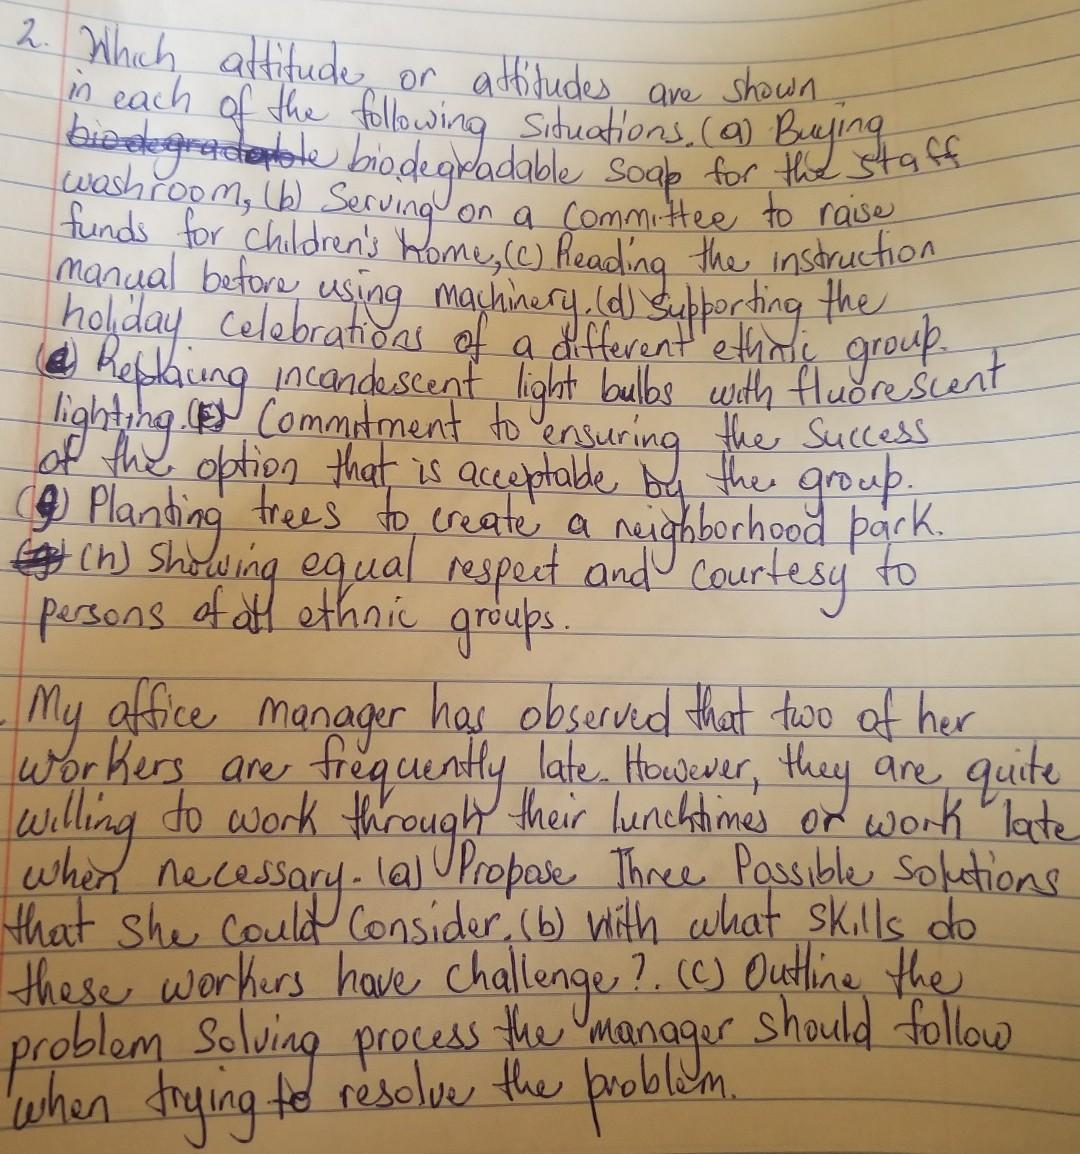 2. Which attitude or attitudes are shown
in each of the following Situations. (a) Buying
biodegradable biodegradable Soap for the staff
washroom, (b) Serving on a Committee to raise
funds for Children's home, (c) Reading the instruction
manual before using machinery. (d) Supporting the
holiday Celebrations of a different ethnic group.
(e) Replacing incandescent light bulbs with fluorescent
lighting. (f) Commitment to ensuring the Success
of the option that is acceptable by the group.
(g) Planting trees to create a neighborhood park.
(h) Showing equal respect and Courtesy to
persons of all ethnic groups.
My office manager has observed that two of her
workers are frequently late. However, they are quite
willing to work through their lunchtimes or work late
when necessary. (a) Propose Three Possible Solutions
that she Could Consider. (b) With what Skills do
these workers have Challenge?. (c) Outline the
problem Solving process the manager should follow
when trying to resolve the problem.